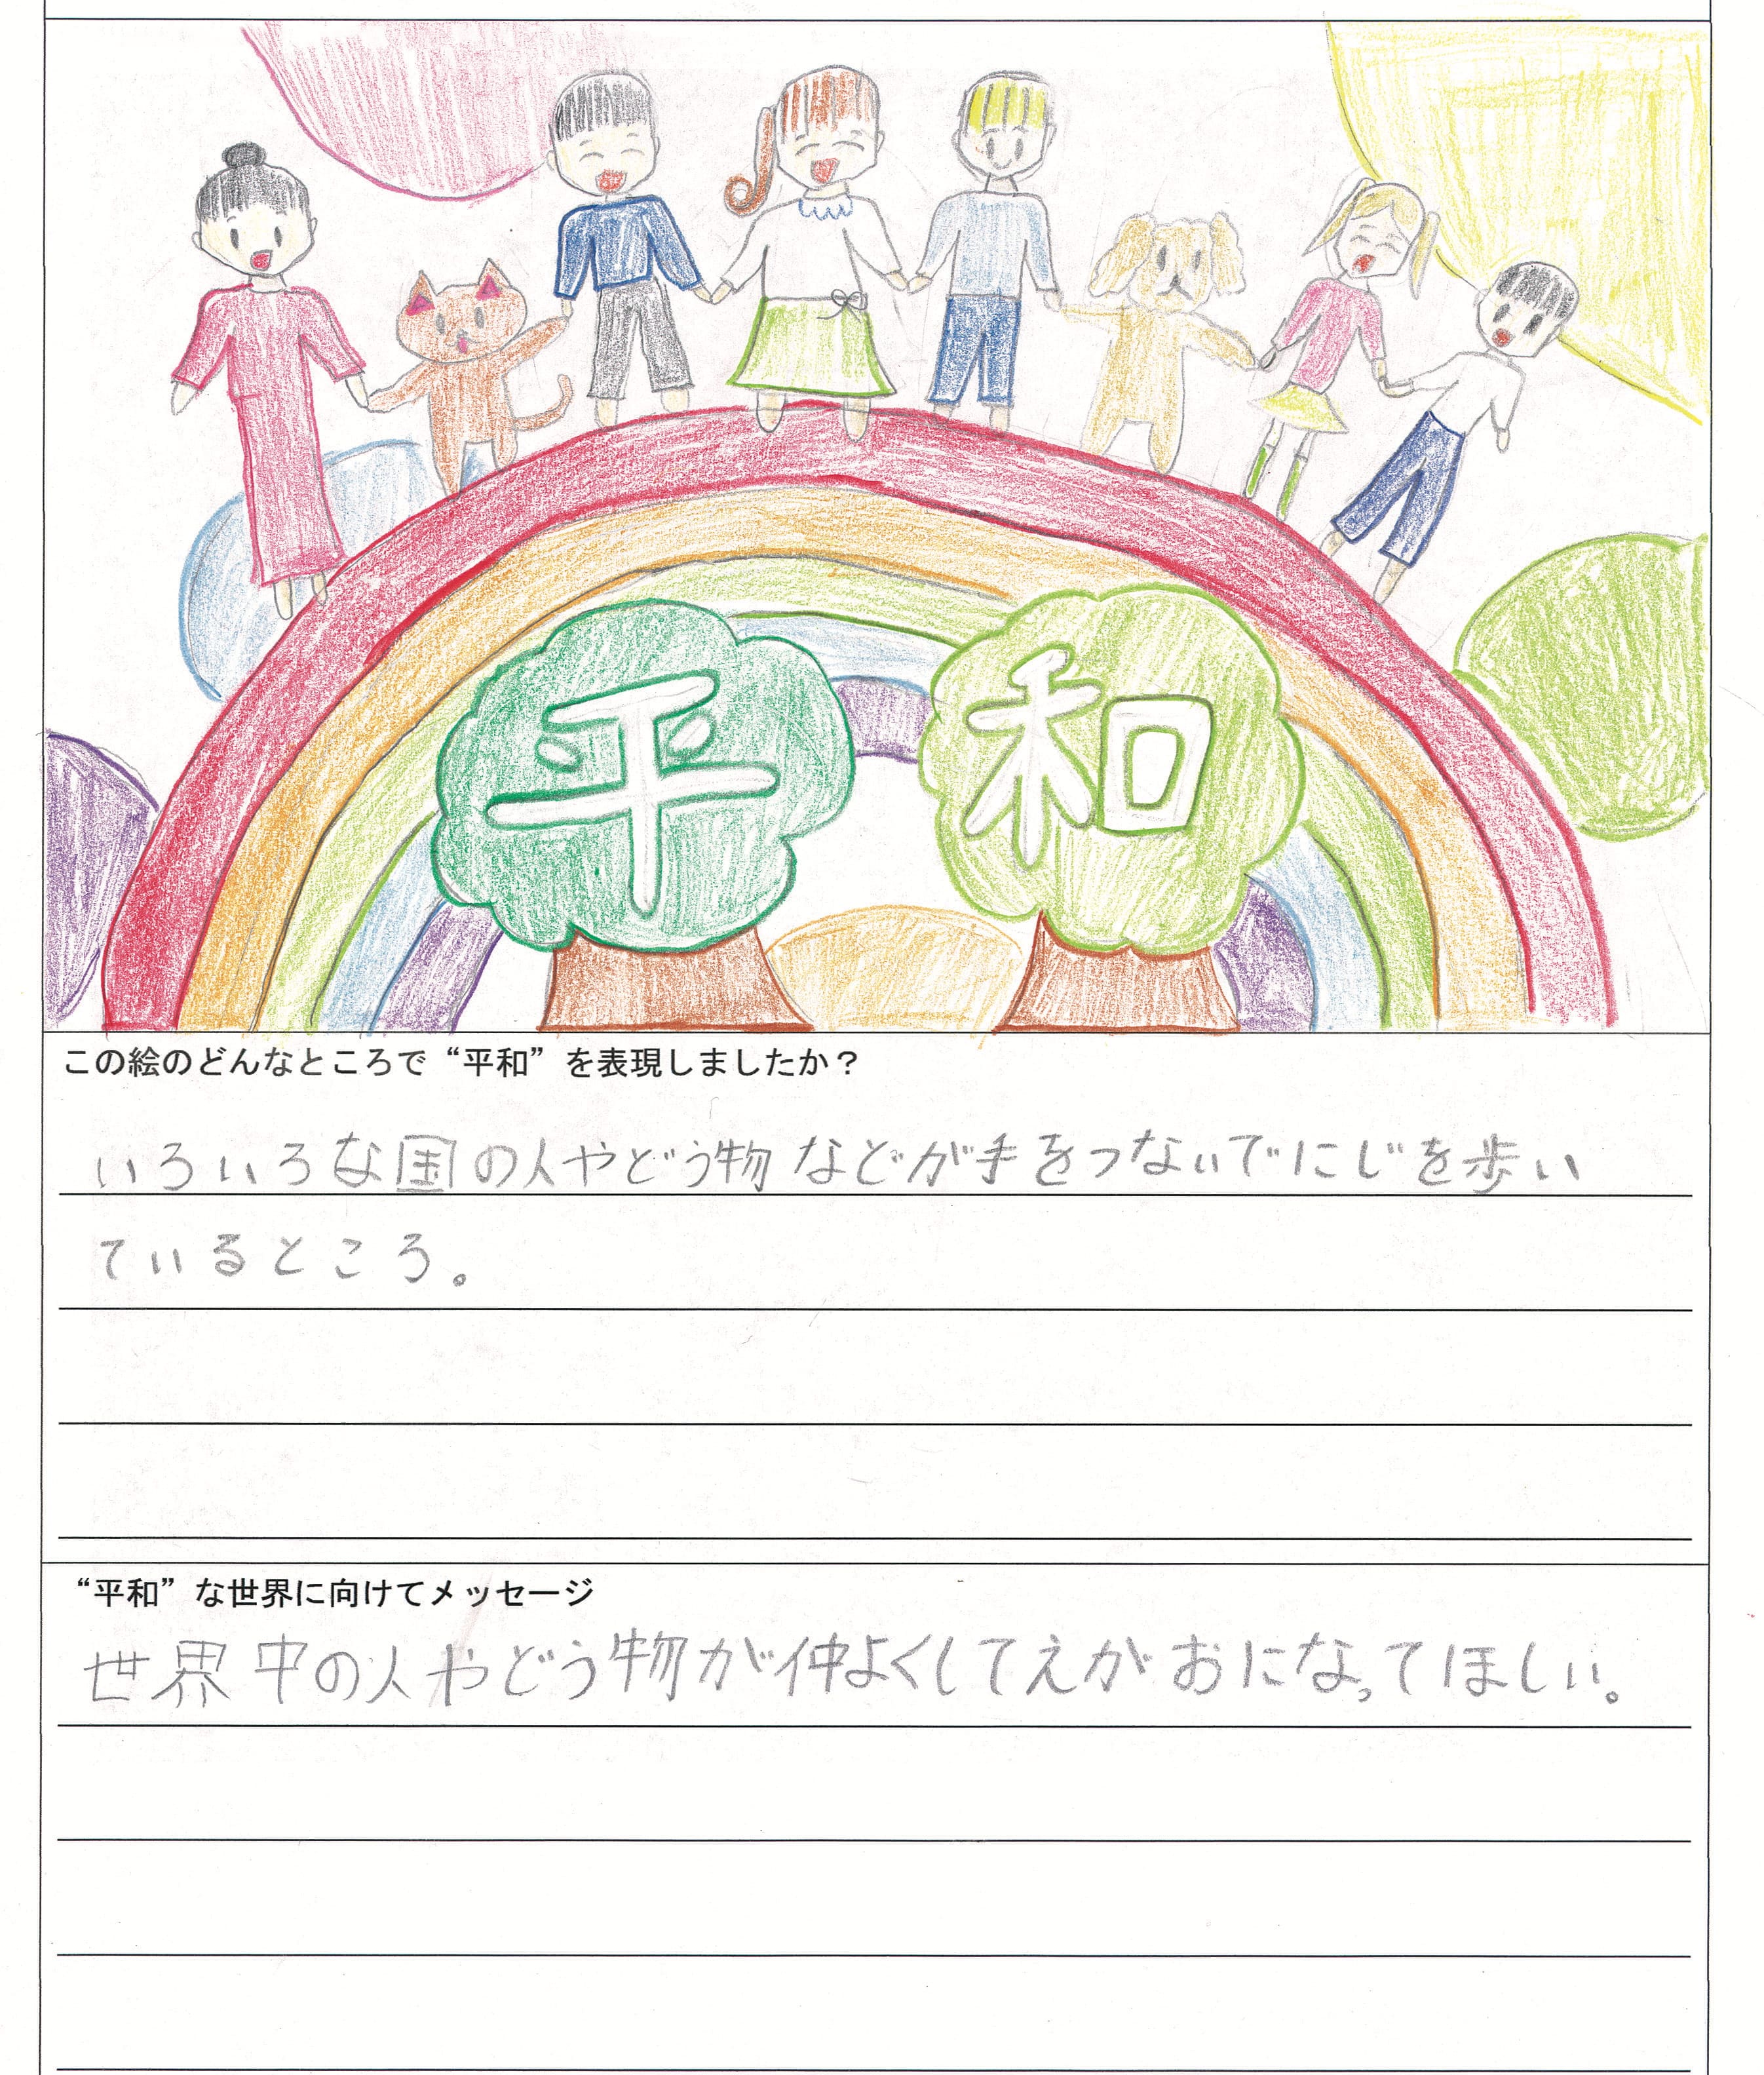 平和
この絵のどんなところで“平和”を表現しましたか？
いろいろな国の人やどう物などが手をつないでにじを歩い
ているところ。
“平和”な世界に向けてメッセージ
世界中の人やどう物が仲よくしてえがおになってほしい。